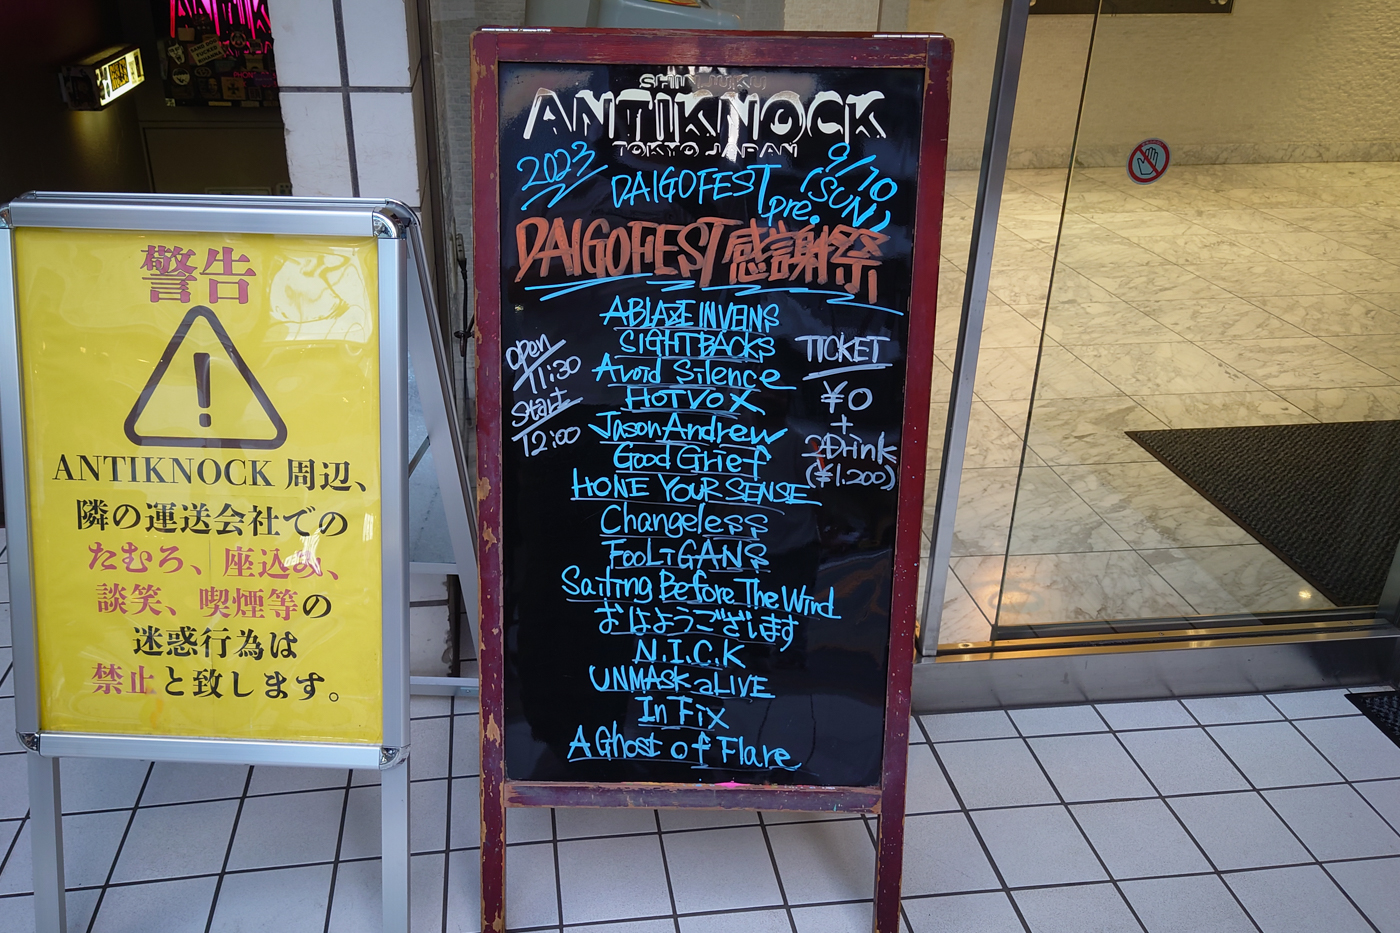 ANTIKNOCK
警告
ANTIKNOCK 周辺、
隣の運送会社での
たむろ、座込み、
談笑、喫煙等の
迷惑行為は
禁止と致します。
SHINJUKU
ANTIKNOCK
TOKYO JAPAN
2023
9/10
(SUN)
DAIGOFEST pre.
DAIGOFEST感謝祭
open
11:30
Start
12:00
ABLAZE IN VEINS
SIGHTBACKS
Avoid Silence
HOTVOX
JasonAndrew
Good Grief
HONE YOUR SENSE
Changeless
FOOLiGANS
Sailing Before The Wind
おはようございます
N.I.C.K
UNMASK aLIVE
In Fix
A Ghost of Flare
TICKET
¥0
+
2Drink
(¥1.200)